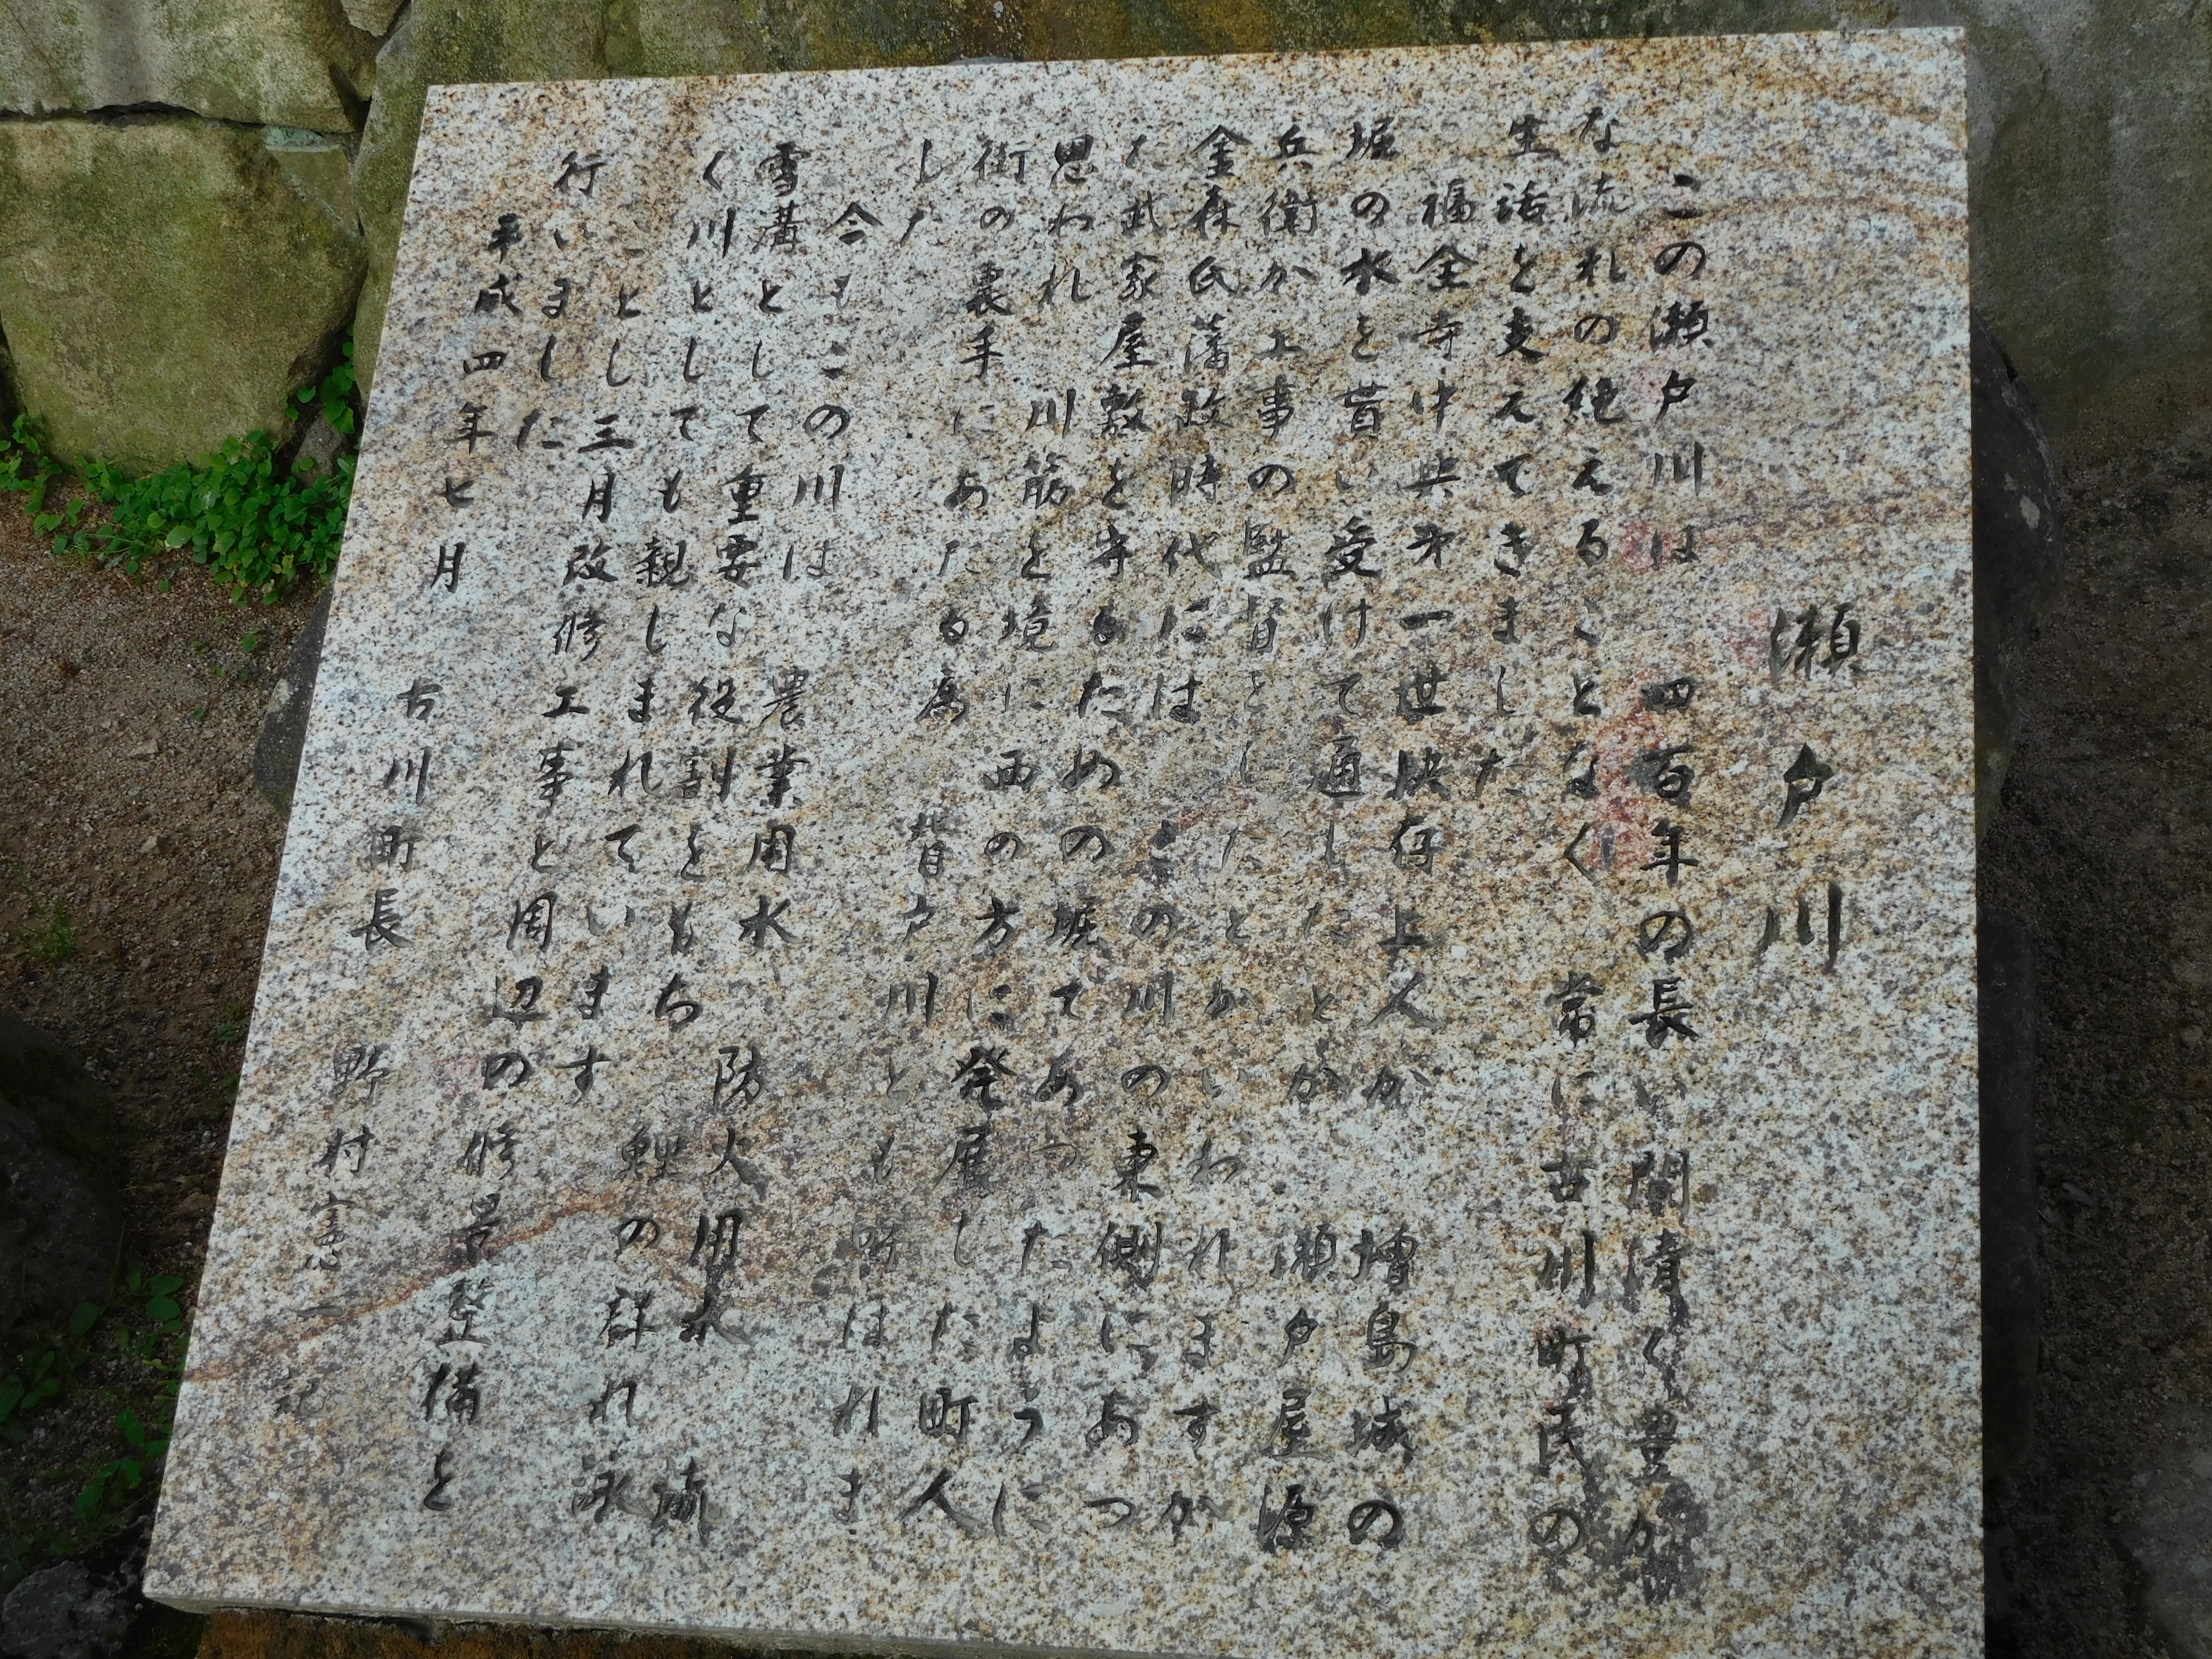 瀬戸川
この瀬戸川は 四百年の長い間清く豊か
な流れの絶えることなく 常に古川町民の
生活を支えてきました
福全寺中興第一世快存上人が 増島城の
堀の水を貰い受けて通したとか 瀬戸屋源
兵衛が工事の監督としたとかいわれますが
金森氏藩政時代には この川の東側にあっ
た武家屋敷を守るための堀であったように
思われ 川筋を境に西の方に発展した町人
街の裏手にあたる為 背戸川とも呼ばれま
した
今もこの川は 農業用水 防火用水 流
雪溝として重要な役割をもち 鯉の群れ泳
ぐ川としても親しまれています
ことし三月改修工事と周辺の修景整備を
行いました
平成四年七月
古川町長 野村憲一 記